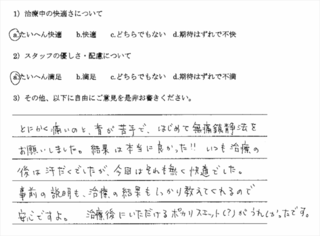 1）治療中の快適さについて
ⓐたいへん快適　b.快適　c.どちらでもない　d.期待はずれで不快
2）スタッフの優しさ・配慮について
ⓐたいへん満足　b.満足　c.どちらでもない　d.期待はずれで不満
3）その他、以下に自由にご意見を是非お書きください。
とにかく痛いのと、音が苦手で、はじめて無痛鎮静法を
お願いしました。結果は本当に良かった!! いつも治療の
後は汗だくでしたが、今回はそれも無く快適でした。
事前の説明も、治療の結果もしっかり教えてくれるので
安心ですよ。　治療後にいただけるポカリスエット(?)がうれしかったです。